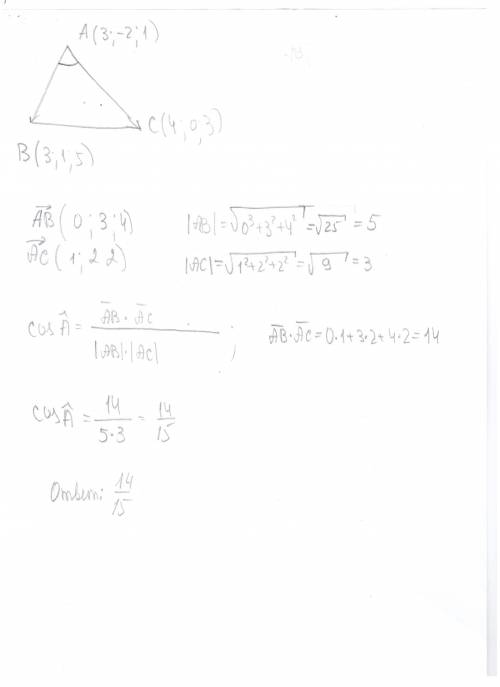 A(3;-2;1)
C(4;0;3)
B(3;1;5)
AB(0;3;4) |AB|=√0³+3²+4²=√25=5
AC(1;2 2) |AC|=√1²+2²+2²=√9=3
cos Â= AB·AC / |AB|·|AC| ; AB·AC=0·1+3·2+4·2=14
cos Â= 14/5·3 = 14/15
Ответ: 14/15